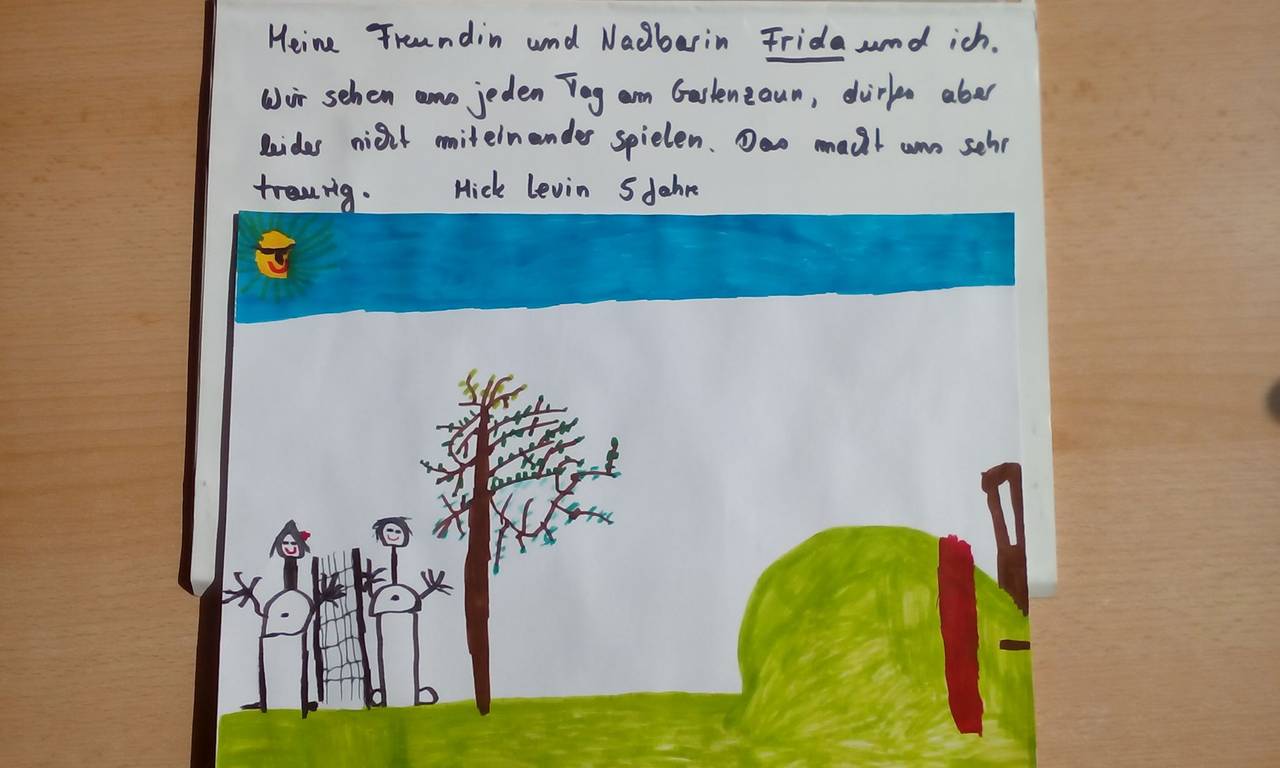 Meine Freundin und Nachbarin Frida und ich.
Wir sehen uns jeden Tag am Gartenzaun, dürfen aber
leider nicht miteinander spielen. Das macht uns sehr
traurig. Mick Levin 5 Jahre